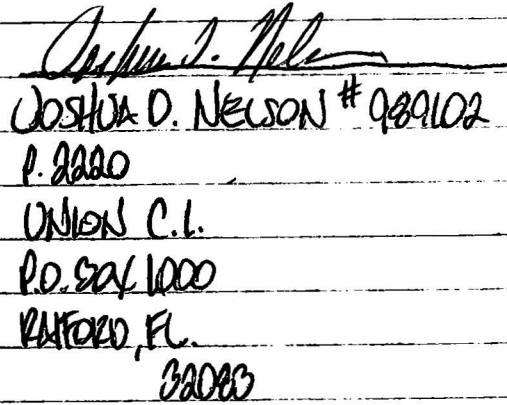 Joshua D. Nelson
JOSHUA D. NELSON # 989102
P. 2220
UNION C.I.
P.O. BOX 1000
RAIFORD, FL.
32083